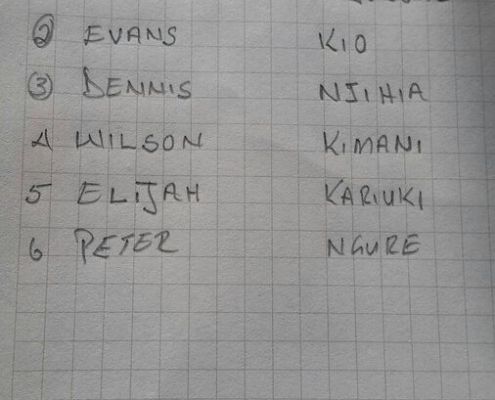 ② EVANS KIO
③ DENNIS NJIHIA
4 WILSON KIMANI
5 ELIJAH KARIUKI
6 PETER NGURE